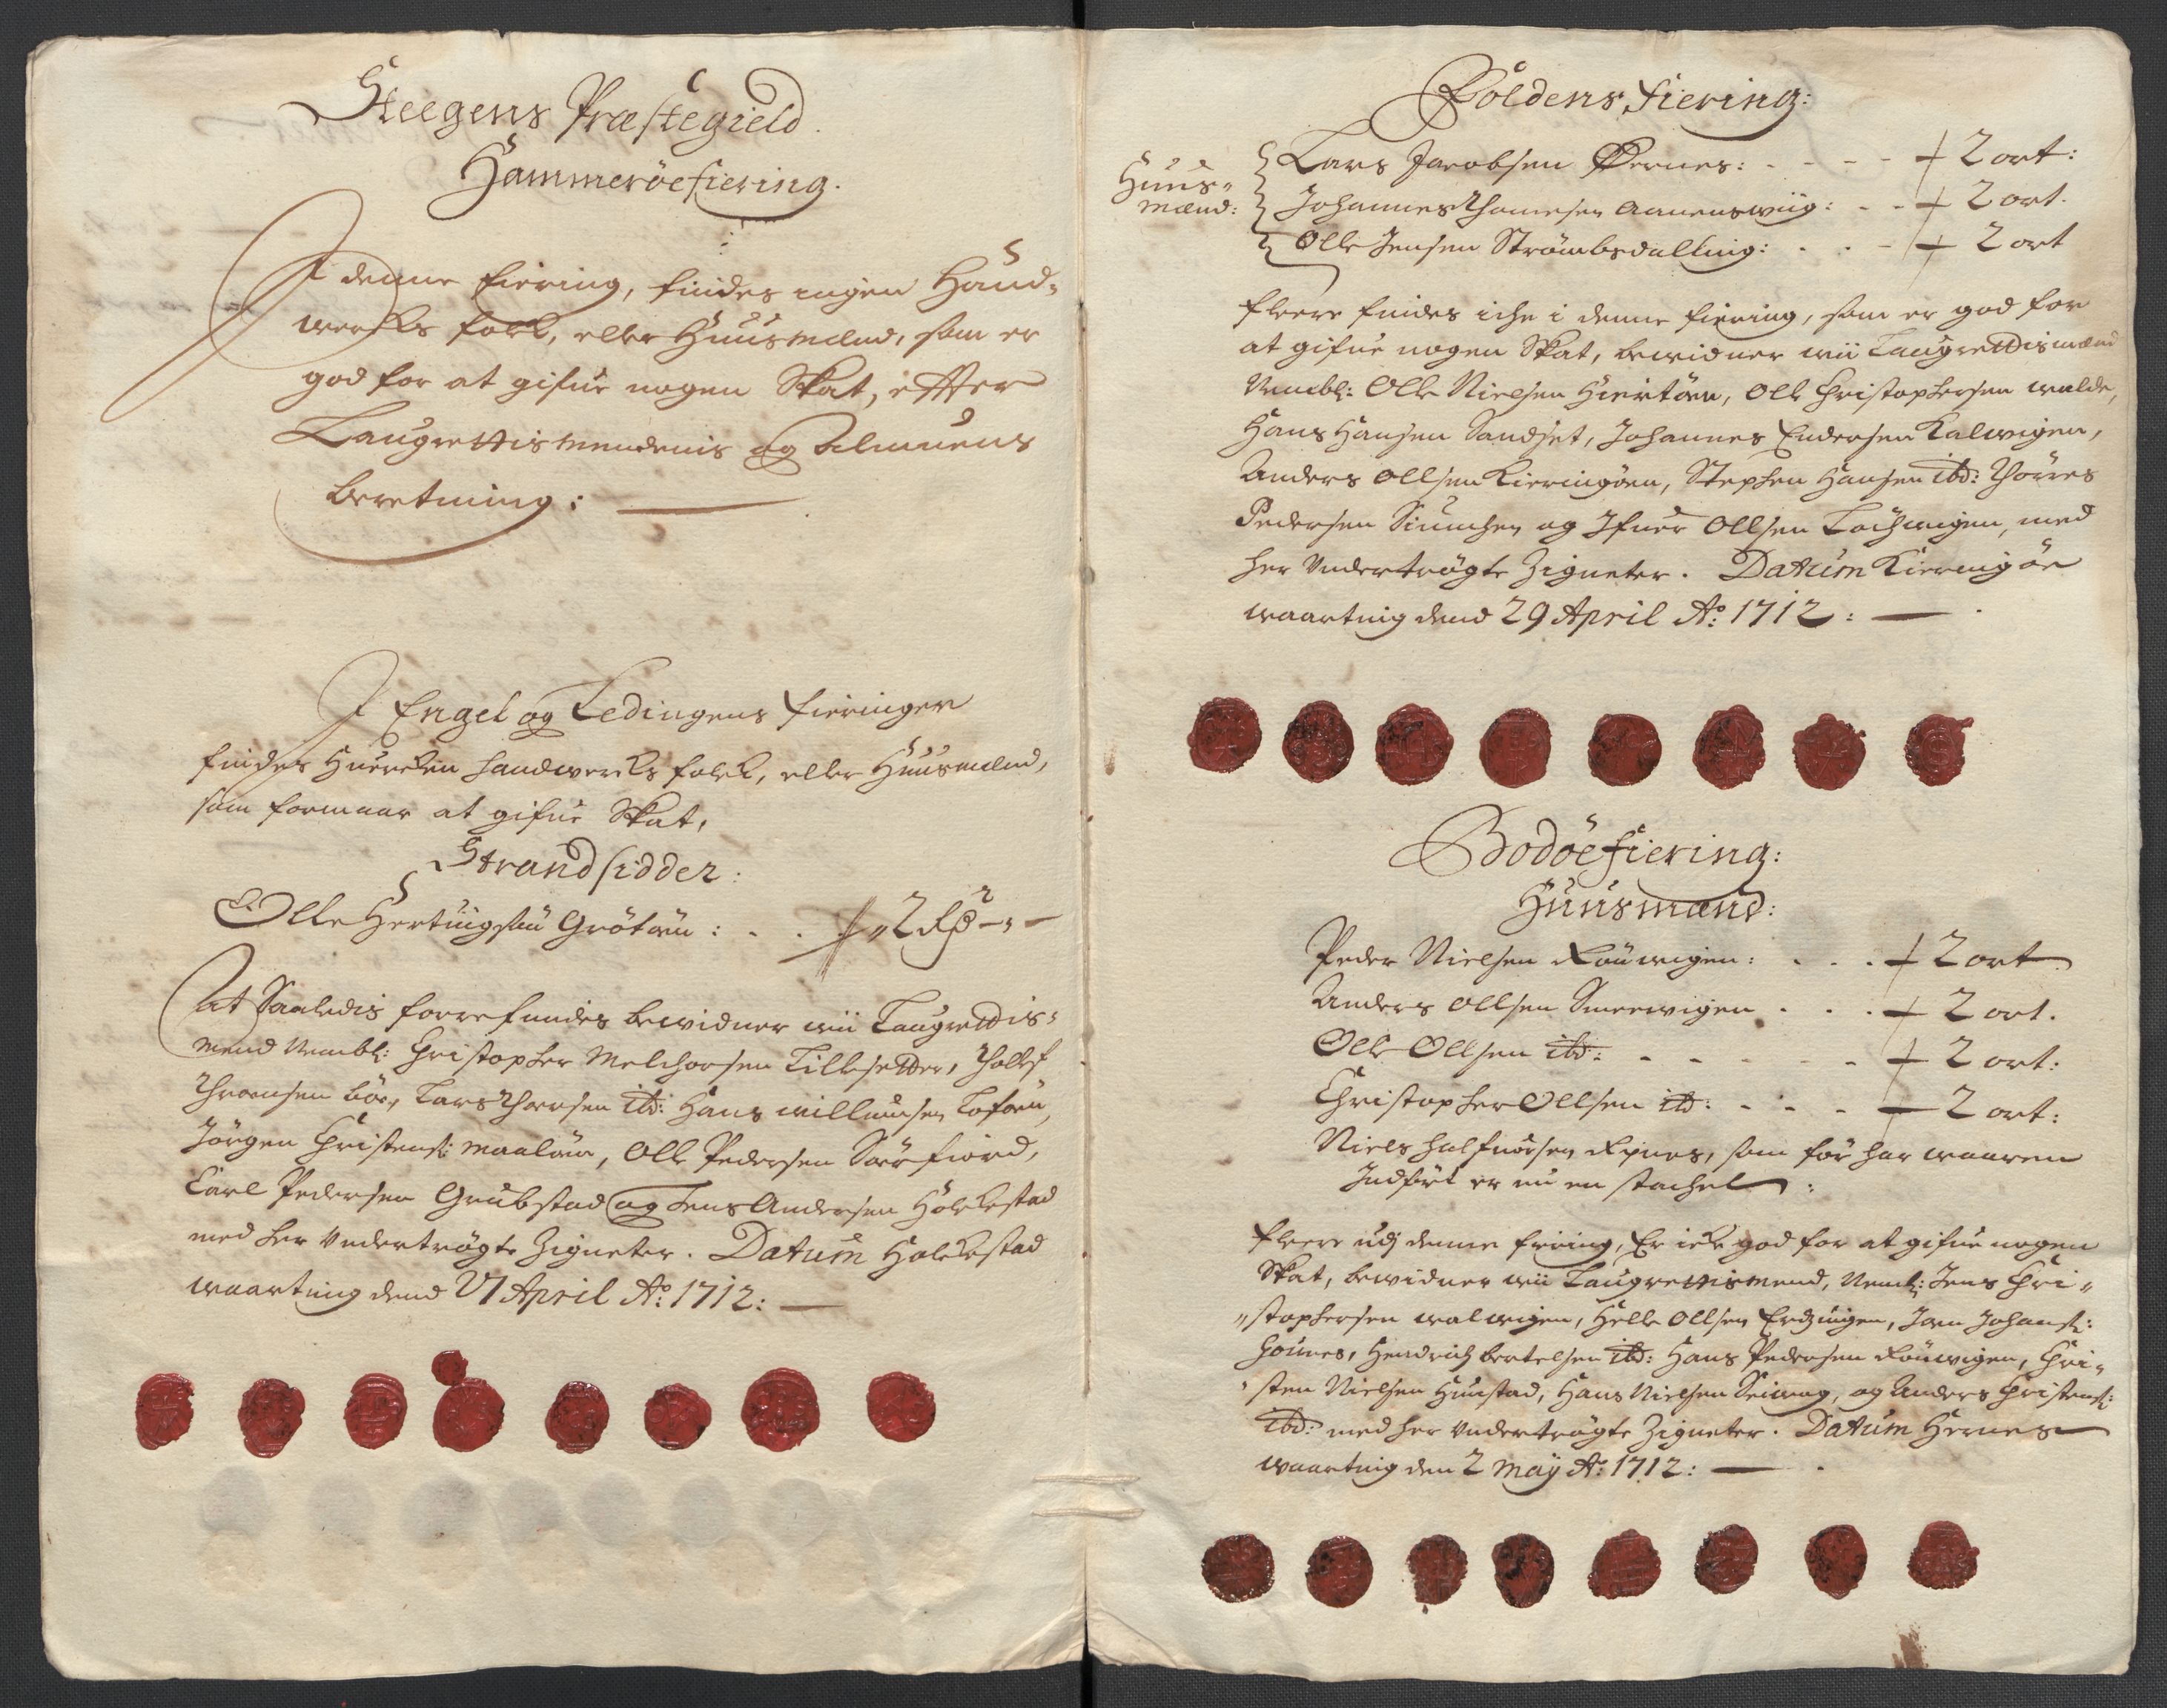 Steegens Præstegield.
Hammeröefiering.
I denne fiering, findes ingen Hand-
wercks folck, eller Huusmænd, som er
god for at gifue nogen Skat, effter
Laugrettismendenis og Almuens
beretning:
I Engel og Ledingens fieringer
findes Huercken handwercks folck, eller Huusmænd,
som formaar at gifue Skat,
Strandsidder:
Olle Hertuigsøn Gröttøen: . . 2 Rdr
At Saaledis forrefindes bewidner wii Laugrettis-
mend Nembl: Christopher Melchorsen Tillesetter, Tollef
Thronsen böe, Lars Thorsen ibd: Hans willumsen Toføen,
Jörgen Christens: maaløen, Olle Pedersen Sørfiord,
Carl Pedersen Grubstad og Jens Andersen Holckestad
med her undertrögte Zigneter. Datum Holckestad
waarting dend 27 April Ao: 1712:
Foldens fiering:
Huus-
mænd:
Lars Jacobsen Øernes: - - - - 2 ort:
Johannes Thomesen Annenswiig: - - 2 ort.
Olle Jensen Strömbsdalling: . . - 2 ort
fleere findes iche i denne fiering, som er god for
at gifue nogen Skat, bewidner wii Laugrettismænd
Nembl: Olle Nielsen Hiertøen, Olle Christophersen walde,
Hans Hansen Sandset, Johannes Endersen Kalwigen,
Anders Ollsen Kieringøen, Stephen Hansen ibd: Thörres
Pedersen Siunhen og Ifuer Ollsen Lochwigen, med
her undertrögte Zigneter. Datum Kieringöe
waarting dend 29 April Ao: 1712:
Bodöefiering:
Huusmænd:
Peder Nielsen Löuwigen: . . . 2 ort
Anders Ollsen Smeewigen . . . 2 ort.
Olle Ollsen ibd: - - - - - - 2 ort:
Christopher Ollsen ibd: - - - - 2 ort:
Niels halfuorsen Ripnes, som för har waaren
Indfört er nu en stachel:
fleere udj denne fiering, Er icke god for at gifue nogen
Skat, bewidner wii Laugrettismend, Neml: Jens Chri-
stophersen walwigen, Helle Ollsen Erdzingen, Jon Johans:
Hounes, Hendrich bertelsen ibd: Hans Pedersen Löuwigen, Chri-
sten Nielsen Hunstad, Hans Nielsen Seiwog, og Anders Christens:
ibd: med her undertrögte Zigneter. Datum Hernes
waarting den 2 May Ao: 1712: